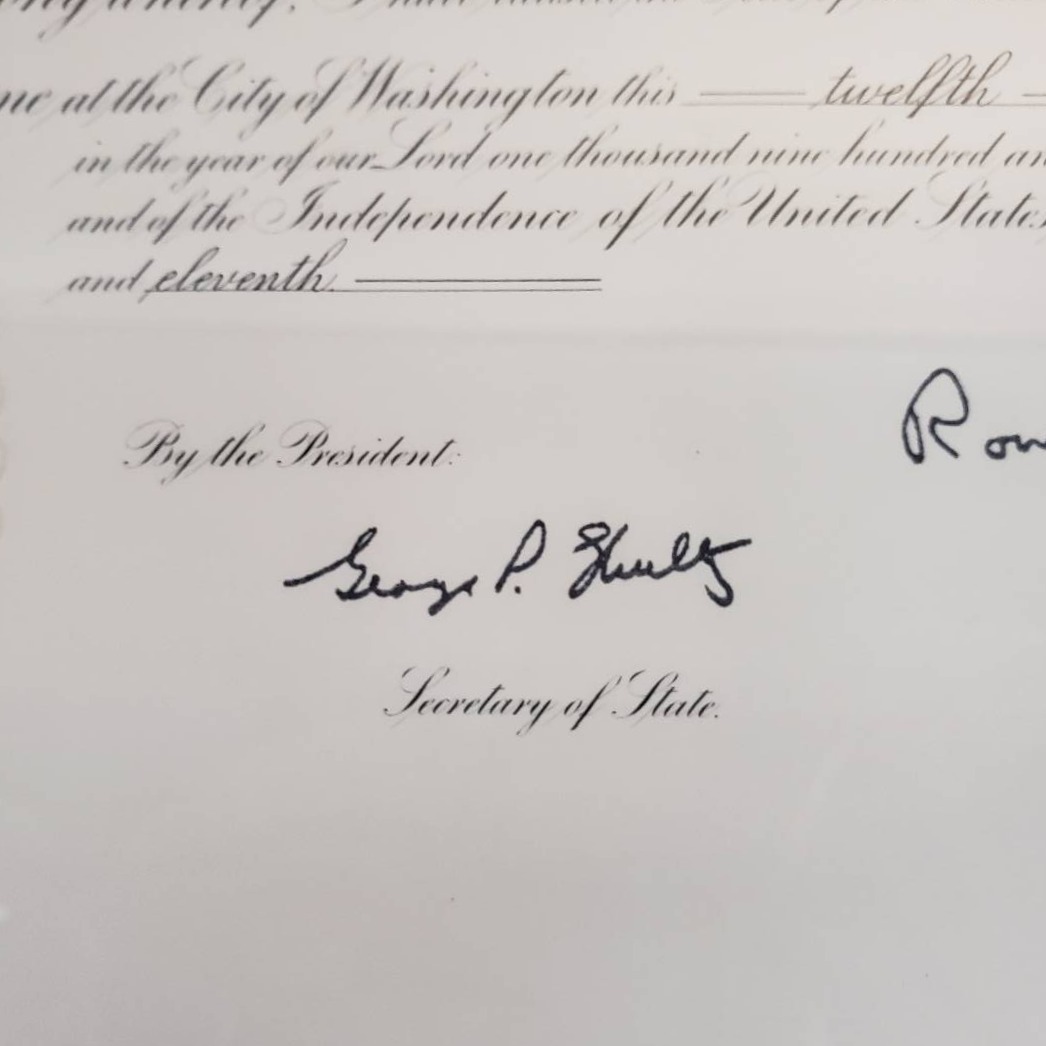 at the City of Washington this twelfth
in the year of our Lord one thousand nine hundred
and of the Independence of the United States
and eleventh
By the President:
Ron
George P. Shultz
Secretary of State.